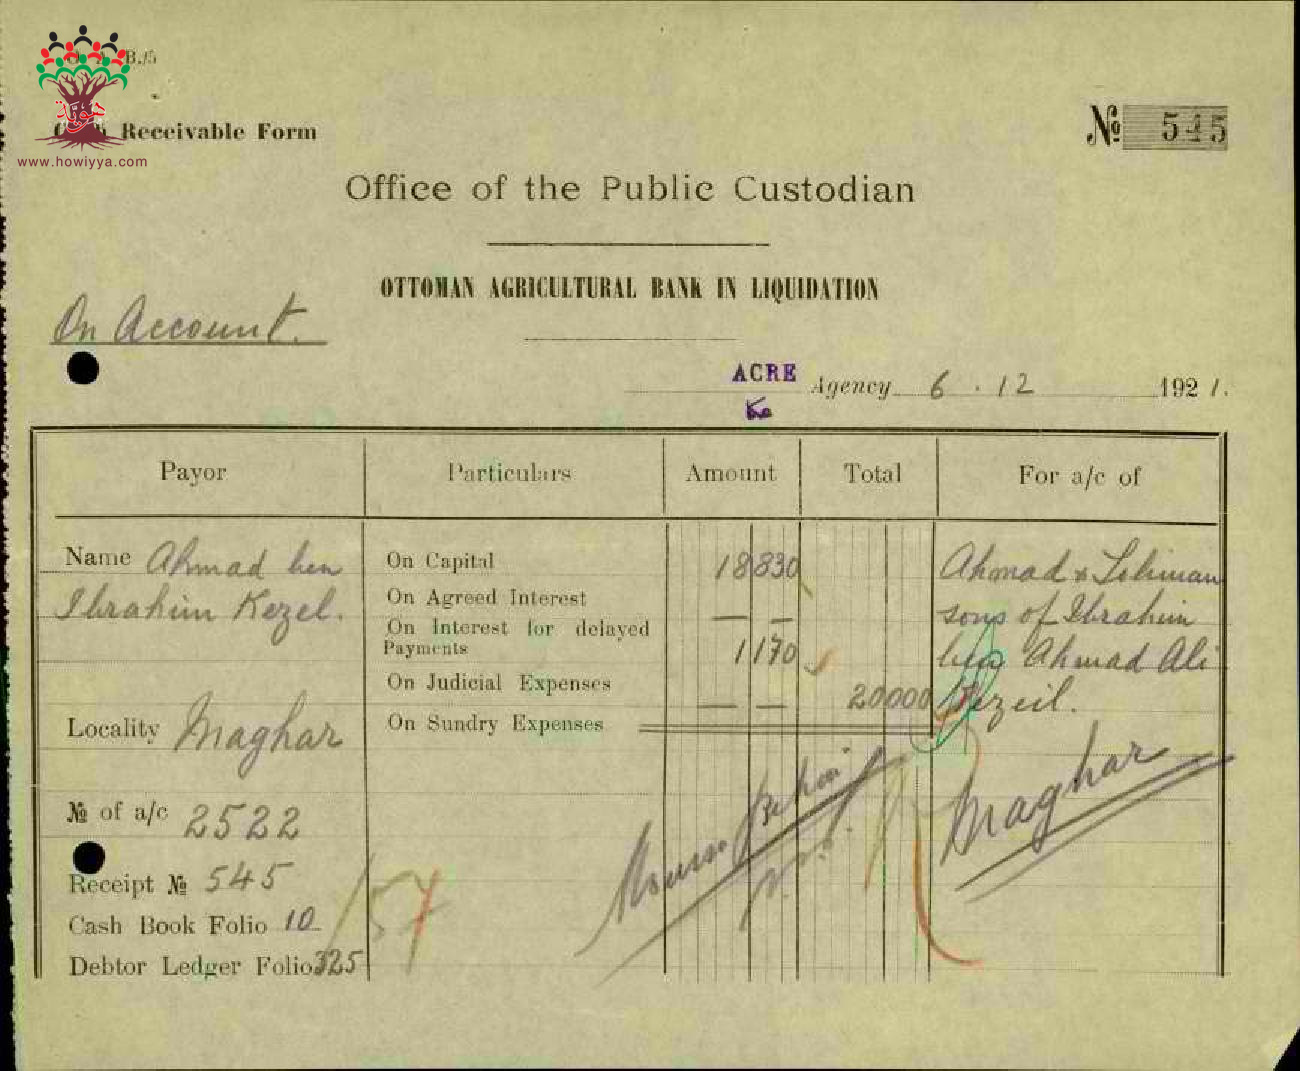 B.15
هوية
www.howiyya.com
Receivable Form
№ 545
Office of the Public Custodian
OTTOMAN AGRICULTURAL BANK IN LIQUIDATION
On Account.
ACRE Agency 6 . 12 1921.
Payor Particulars Amount Total For a/c of
Name Ahmad ben
Ibrahim Kezel.
Locality Maghar
№ of a/c 2522
Receipt № 545
Cash Book Folio 10
Debtor Ledger Folio 325
On Capital 18 830
On Agreed Interest — —
On Interest for delayed
Payments 1 170
On Judicial Expenses — —
On Sundry Expenses
20000
Ahmad & Sliman
sons of Ibrahim
ben Ahmad Ali
Kezeil.
Maghar
157